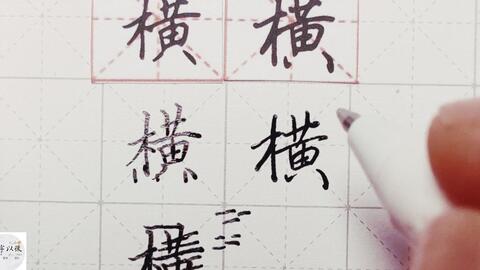 横 横
横 横
横